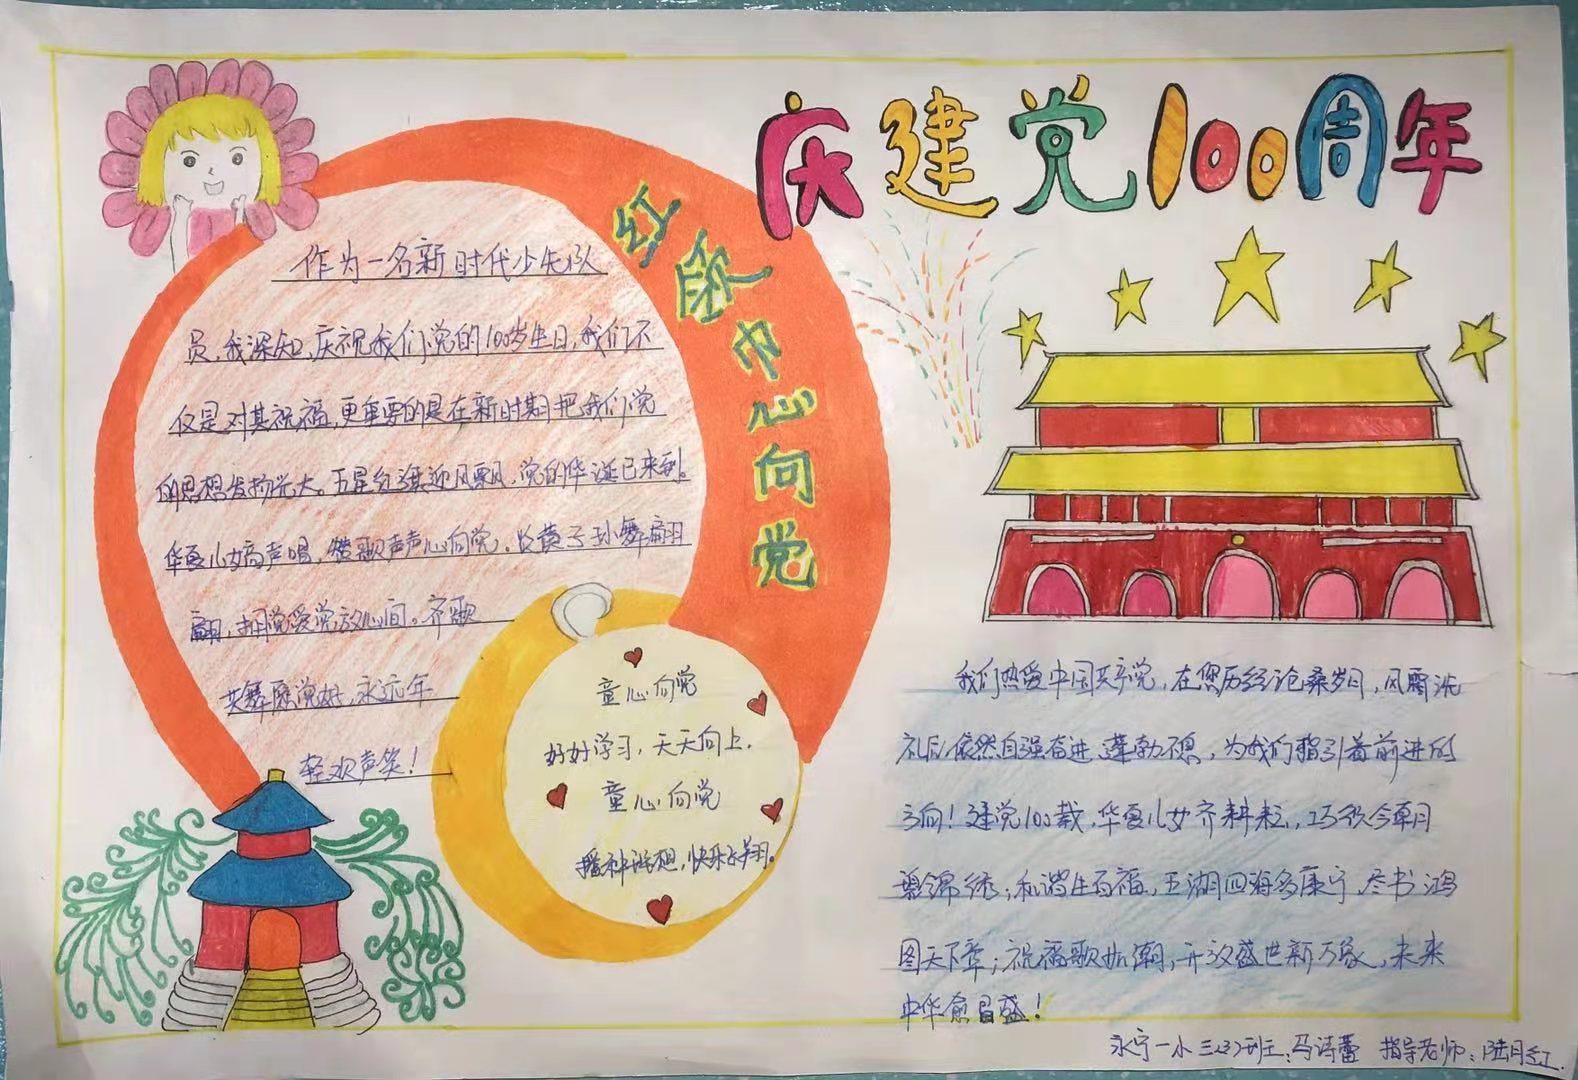 庆建党100周年
红领巾心向党
作为一名新时代少先队
员,我深知,庆祝我们党的100岁生日,我们不
仅是对其祝福,更重要的是在新时期把我们党
的思想发扬光大。五星红旗迎风飘,党的华诞已来到。
华夏儿女高声唱,赞歌声声心向党。炎黄子孙舞翩
翩,拥党爱党放心间。齐歌
共舞愿党好,永远年
轻欢声笑!
童心向党
好好学习,天天向上.
童心向党
播种梦想,快乐飞翔。
我们热爱中国共产党,在您历经沧桑岁月,风雨洗
礼后依然自强奋进、蓬勃不息,为我们指引着前进的
方向!建党100载,华夏儿女齐耕耘,巧织今朝
锦绣;和谐生百福,五湖四海多康宁,尽书鸿
图天下章;祝福歌如潮,开放盛世新万象,未来
中华愈昌盛!
永宁一小三(2)班:马诗蕾 指导老师:陆月红.